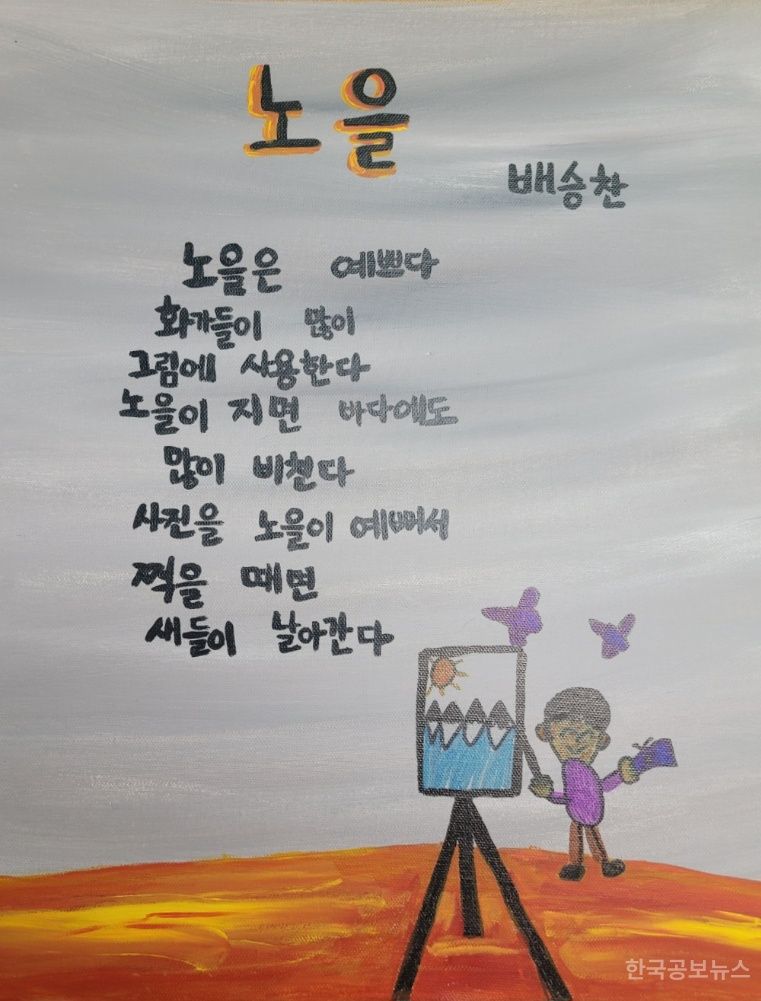 노을
배승찬
노을은 예쁘다
화가들이 많이
그림에 사용한다
노을이 지면 바다에도
많이 비친다
사진을 노을이 예뻐서
찍을 때면
새들이 날아간다
한국공보뉴스